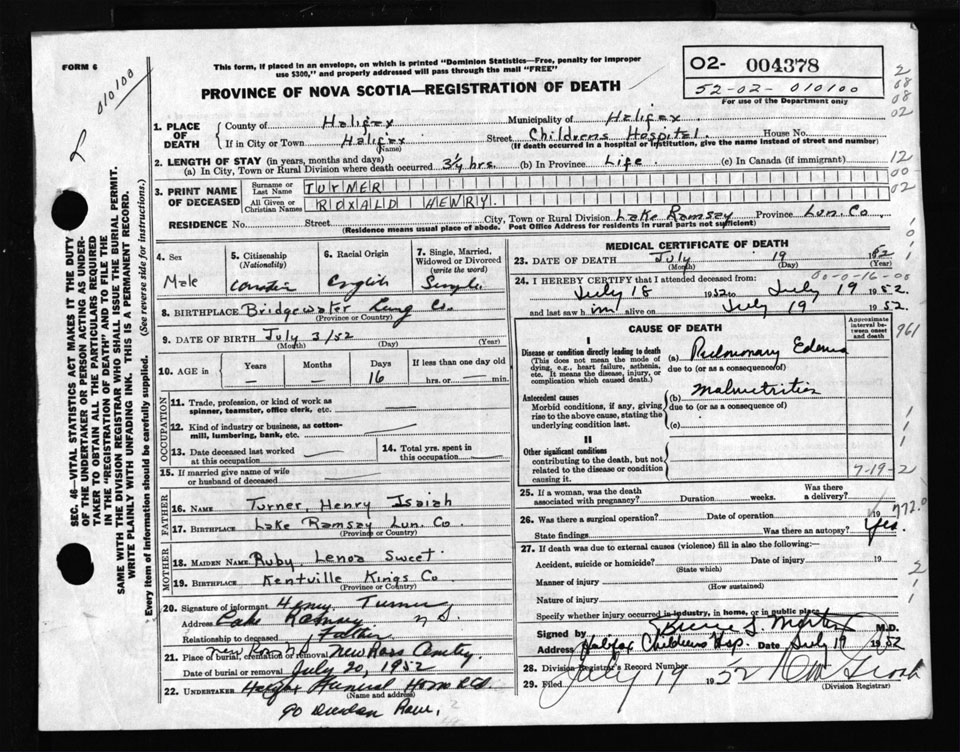 FORM 6
010100
This form, if placed in an envelope, on which is printed "Dominion Statistics—Free, penalty for improper
use $300," and properly addressed will pass through the mail "FREE"
PROVINCE OF NOVA SCOTIA—REGISTRATION OF DEATH
02- 004378
52-02-010100
For use of the Department only
1. PLACE OF DEATH
County of Halifax Municipality of Halifax
If in City or Town Halifax Street Childrens Hospital. House No.
(Name) (If death occurred in a hospital or institution, give the name instead of street and number)
2. LENGTH OF STAY (in years, months and days)
(a) In City, Town or Rural Division where death occurred 3¼ hrs. (b) In Province Life. (c) In Canada (if immigrant)
3. PRINT NAME OF DECEASED
Surname or Last Name TURNER
All Given or Christian Names ROXALD HENRY.
RESIDENCE No. Street City, Town or Rural Division Lake Ramsay Province Lun. Co
(Residence means usual place of abode. Post Office Address for residents in rural parts not sufficient)
4. Sex Male
5. Citizenship (Nationality)
6. Racial Origin English
7. Single, Married, Widowed or Divorced (write the word) Single
8. BIRTHPLACE Bridgewater Lung Co.
(Province or Country)
9. DATE OF BIRTH July 3/52
(Month) (Day) (Year)
10. AGE in Years — Months — Days 16 If less than one day old hrs. or min.
OCCUPATION
11. Trade, profession, or kind of work as spinner, teamster, office clerk, etc. —
12. Kind of industry or business, as cotton-mill, lumbering, bank, etc. —
13. Date deceased last worked at this occupation —
14. Total yrs. spent in this occupation —
15. If married give name of wife or husband of deceased —
FATHER
16. NAME Turner, Henry Isaiah
17. BIRTHPLACE Lake Ramsay Lun. Co.
(Province or Country)
MOTHER
18. MAIDEN NAME Ruby Lenoa Sweet
19. BIRTHPLACE Kentville Kings Co.
(Province or Country)
20. Signature of informant Henry Turner
Address Lake Ramsay N S.
Relationship to deceased Father
21. Place of burial, cremation or removal New Ross
Date of burial or removal July 20, 1952
22. UNDERTAKER Halifax Funeral Home Ltd
(Name and Address)
90
MEDICAL CERTIFICATE OF DEATH
23. DATE OF DEATH July 19 1952
(Month) (Day) (Year)
00-0-16-00
24. I HEREBY CERTIFY that I attended deceased from:
July 18 1952 to July 19 1952.
and last saw h im alive on July 19 1952
CAUSE OF DEATH
Approximate interval between onset and death
I
Disease or condition directly leading to death (a) Pulmonary Edema
(This does not mean the mode of dying, e.g., heart failure, asthenia, etc. It means the disease, injury, or complication which caused death.)
due to (or as a consequence of)
Antecedent causes (b) Malnutrition
Morbid conditions, if any, giving rise to the above cause, stating the underlying condition last.
due to (or as a consequence of)
(c)
II
Other significant conditions
contributing to the death, but not related to the disease or condition causing it.
7-19-2
25. If a woman, was the death associated with pregnancy? Duration weeks. Was there a delivery?
26. Was there a surgical operation? Date of operation 19
State findings Was there an autopsy? Yes.
772.0
27. If death was due to external causes (violence) fill in also the following:—
Accident, suicide or homicide? Date of injury 19
(State which)
Manner of injury
(How sustained)
Nature of injury
Specify whether injury occurred in industry, in home, or in public place
Signed by M.D.
Address Halifax Childrens Hosp. Date July 19 1952
28. Division Registrar's Record Number
29. Filed July 19 1952
(Division Registrar)
961
SEC. 46—VITAL STATISTICS ACT MAKES IT THE DUTY
OF THE UNDERTAKER OR PERSON ACTING AS UNDER-
TAKER TO OBTAIN ALL THE PARTICULARS REQUIRED
IN THE "REGISTRATION OF DEATH" AND TO FILE THE
SAME WITH THE DIVISION REGISTRAR WHO SHALL ISSUE THE BURIAL PERMIT.
WRITE PLAINLY WITH UNFADING INK. THIS IS A PERMANENT RECORD.
Every item of information should be carefully supplied. (See reverse side for instructions.)